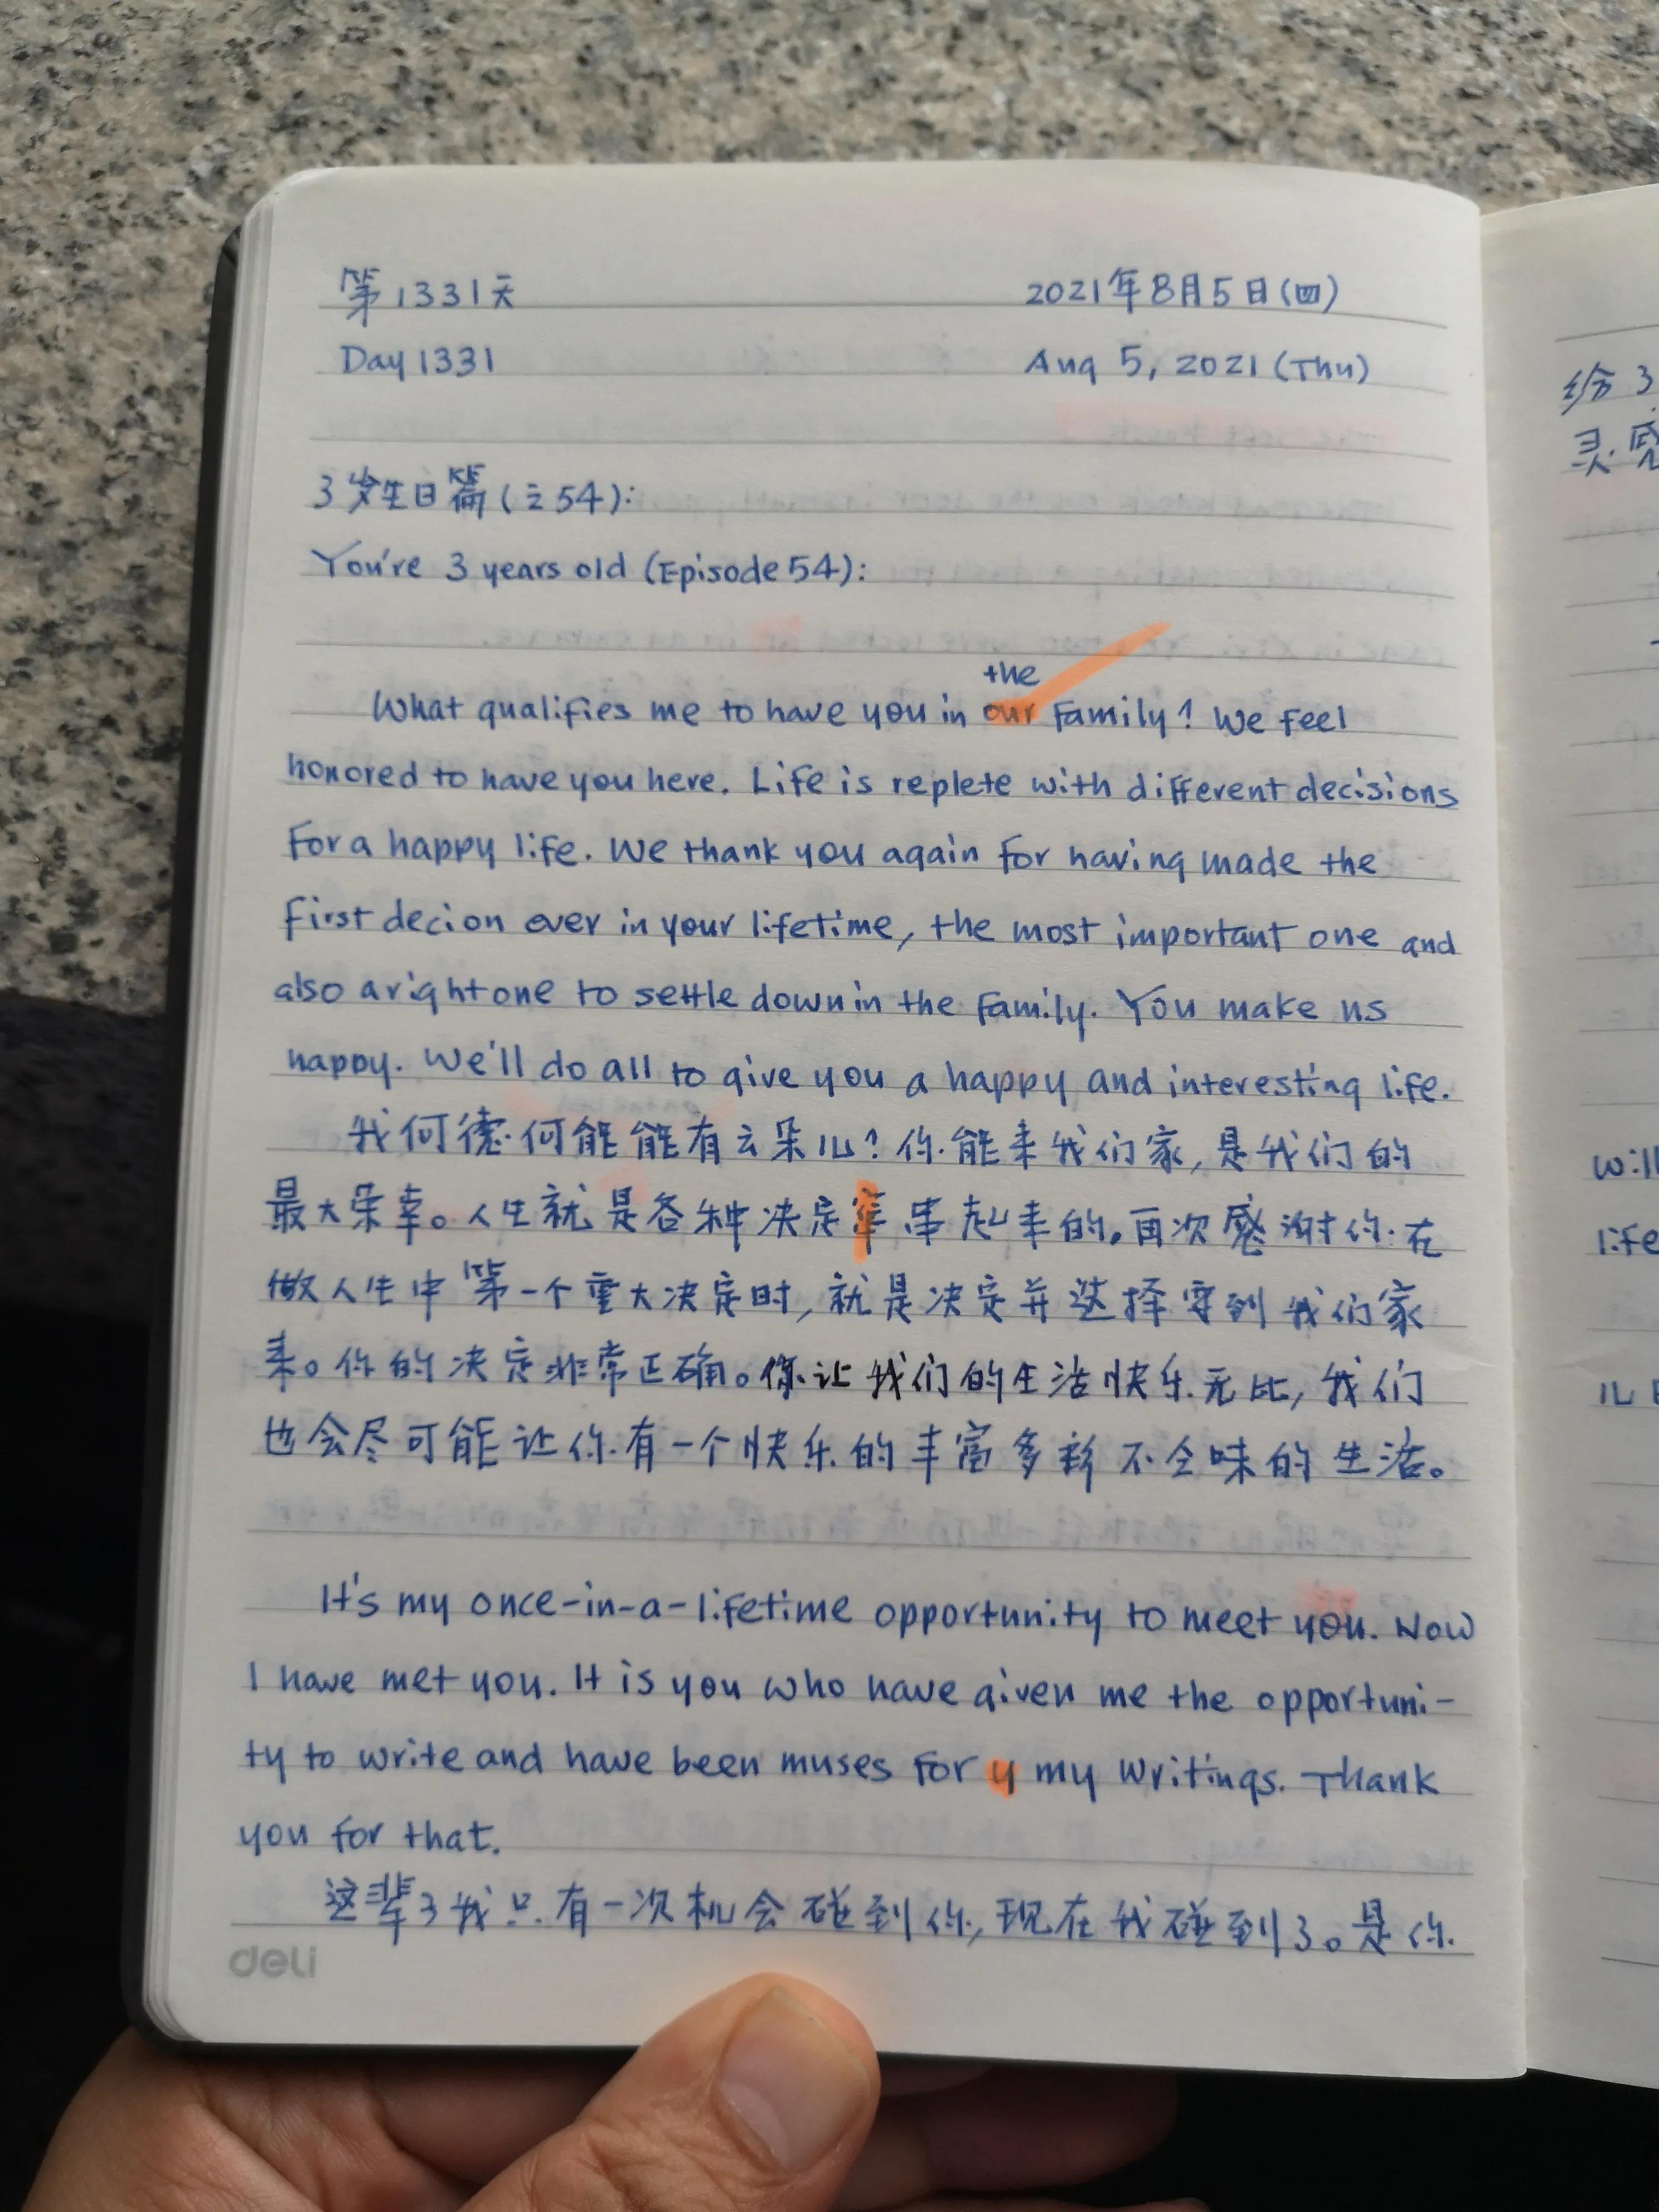 第1331天 2021年8月5日(四)
Day 1331 Aug 5, 2021 (Thu)
3岁生日篇(之54):
You're 3 years old (Episode 54):
the
What qualifies me to have you in our family? We feel
honored to have you here. Life is replete with different decisions
for a happy life. We thank you again for having made the
first decion ever in your lifetime, the most important one and
also a right one to settle down in the family. You make us
happy. We'll do all to give you a happy and interesting life.
我何德何能能有云朵儿?你能来我们家,是我们的
最大荣幸。人生就是各种决定串起来的。再次感谢你在
做人生中第一个重大决定时,就是决定并选择穿到我们家
来。你的决定非常正确。你让我们的生活快乐无比,我们
也会尽可能让你有一个快乐的丰富多彩不全味的生活。
It's my once-in-a-lifetime opportunity to meet you. Now
I have met you. It is you who have given me the opportuni-
ty to write and have been muses for y my writings. Thank
you for that.
这辈子我只有一次机会碰到你,现在我碰到了。是你
deli
给3
灵感
will
life
儿